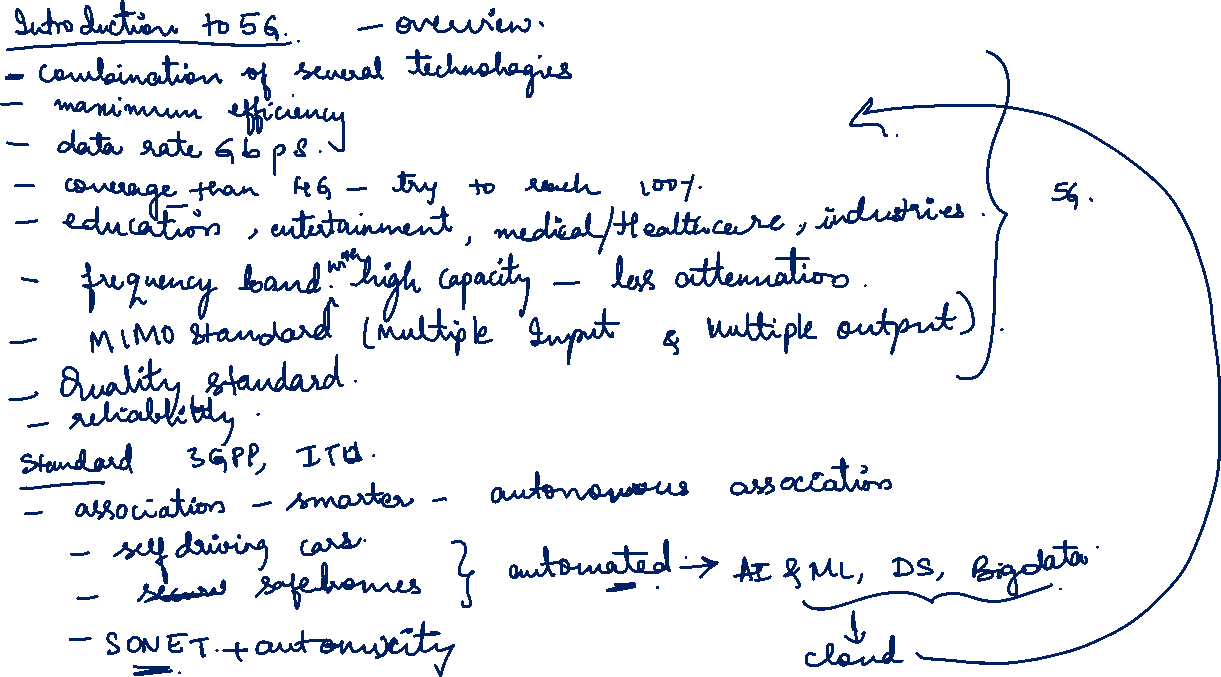 Introduction to 5G. - overview.
- combination of several technologies
- maximum efficiency
- data rate Gbps.
- coverage than 4G - try to reach 100%
- education, entertainment, medical/Healthcare, industries.
5G.
- frequency band with high capacity - less attenuation.
- MIMO standard (Multiple Input & Multiple output).
- Quality standard.
- reliability.
Standard 3GPP, ITU.
- association - smarter - autonomous association
- self driving cars.
- secure safe homes } automated → AI & ML, DS, Bigdata.
- SONET + automicity
cloud